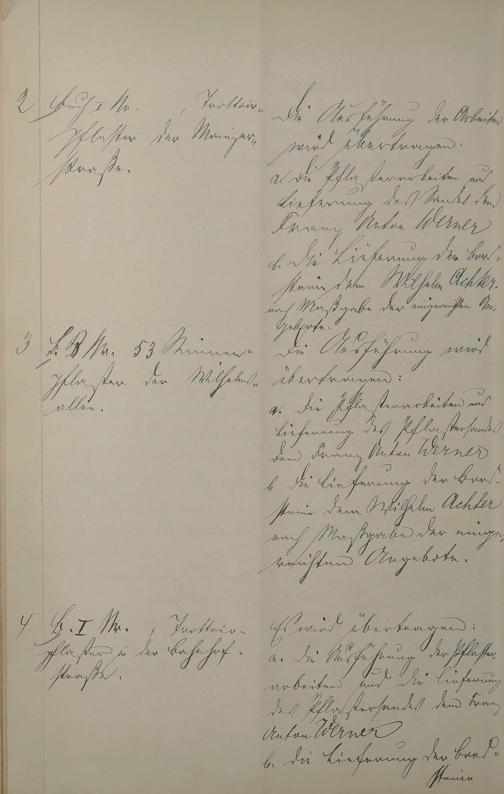 2
Buch I Nr. , Trottoir-
pflaster der Mainzer-
straße.
Die Ausführung der Arbeiten
wird übertragen:
a. Die Pflasterarbeiten und
Lieferung des Sandes dem
Franz Anton Werner
b. Die Lieferung der Bord-
steine dem Wilhelm Achter
nach Maßgabe der eingereichten An-
gebote.
3
B. Nr. 53 Rinnen-
pflaster der Wilhelms-
allee.
Die Ausführung wird
übertragen:
a. Die Pflasterarbeiten und
Lieferung des Pflastersandes
dem Franz Anton Werner
b. Die Lieferung der Bord-
steine dem Wilhelm Achter
nach Maßgabe der einge-
reichten Angebote.
4.
B. I Nr. , Trottoir-
pflaster in der Bahnhof-
straße.
Es wird übertragen:
a. die Ausführung der Pflaster-
arbeiten und die Lieferung
des Pflastersandes dem Franz
Anton Werner
b. die Lieferung der Bord-
steine